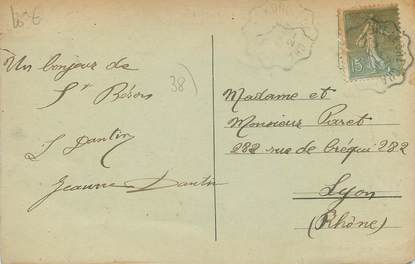 10€
Un bonjour de
St Béron
38)
L Dantin
Jeanne Dantin
Madame et
Monsieur Paret
282 rue de Créqui 282
Lyon
(Rhône)
15